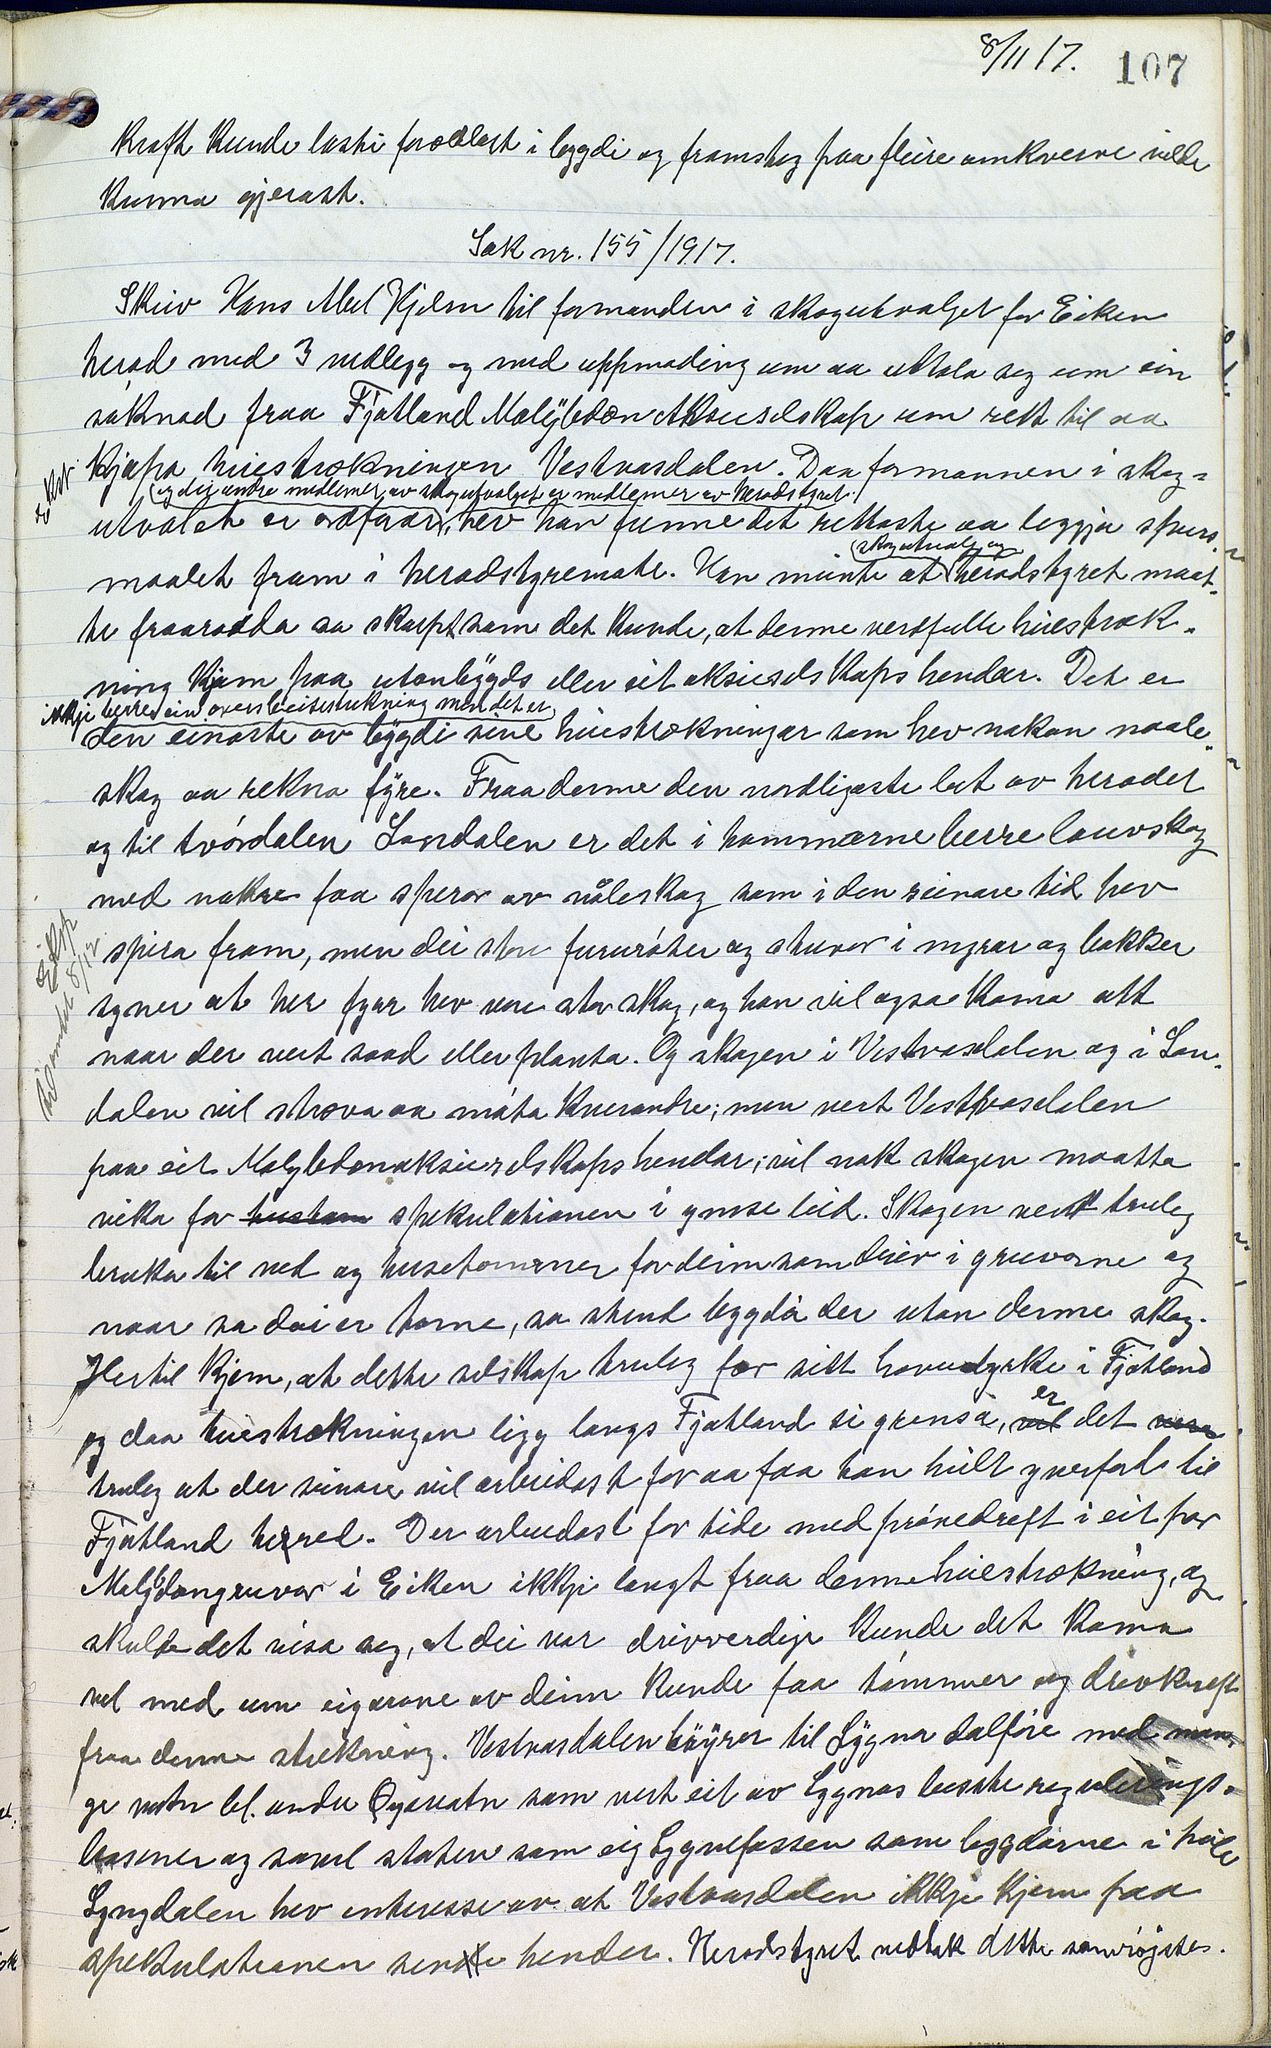 8/11 17. 107
Kraft kunde lasti forædlast i bygdi og framsteg paa fleire omkverve vilde
kunna gjerast.
Sak nr. 155/1917.
Skriv Hans Abel Hjelm til formanden i skogutvalget for Eiken
herad med 3 vedlegg og med uppmoding um aa uttala seg um ein
søknad fraa Fjotland Molybdæn Aksieselskap um rett til aa
kjøpa heiestrækningen Vestvasdalen. Daa formannen i skog-
og dei andre medlemer av skogutvalget er medlemer av heradstyret
utvalet er ordførar, hev han funne det rettaste aa leggja spurs-
skogutvalg og
maalet fram i heradstyremøte. Han meinte at heradstyret maat-
te fraaraada so skarpt som det kunde, at denne verdfulle heiestræk-
ning kjem paa utanbygds eller eit aksieselskaps hendar. Det er
ikkje berre ein overs beitestrekning men det er
den einaste av bygdi sine heiestrækningar som hev nokon naale-
skog aa rekna fyre. Fraa denne den nordligaste lut av heradet
og til tvørdalen Landalen er det i hommarne berre lauvskog
med nokre faa sperar av nåleskog som i den seinare tid hev
spira fram, men dei store fururøter og stuvar i myrar og bakker
syner at her fyrr hev vore stor skog, og han vil ogsa koma att
naar der vert saad eller planta. Og skogen i Vestvasdalen og i Lan-
dalen vil strøva aa møta kverandre; men vert Vestvasdalen
paa eit Molybdenaksieselskaps hendar, vil nok skogen maatta
vika for spekulationen i ymse leid. Skogen vert truleg
bruka til ved og husetømmer for deim som driv i gruvorne og
naar so dei er tome, so stend bygdi der utan denne skog.
Hertil kjem, at dette selskap truleg fær sitt hovudyrke i Fjotland
og daa heiestrekningen ligg langs Fjotland si grensa, er det
truleg at der seinare vil arbeidast for aa faa han heilt yverført til
Fjotland herred. Der arbeidast for tide med prøvedreft i eit par
Molybdængruvor i Eiken ikkji langt fraa denne heiestrækning, og
skulde det visa seg, at dei var drivverdige kunde det koma
vel med um eigarane av deim kunde faa tømmer og drivkraft
fraa denne strekning. Vestvasdalen høyrer til Lygna dalføre med man-
ge vatn bl. andre Øyarvatn som vert eit av Lygnas beste regulerings-
basener og saavel staten som eig Lygnefossen som bygdarne i heile
Lyngdalen hev interesse av at Vestvasdalen ikkje kjem paa
spekulationen sende hender. Heradstyret vedtok dette samrøystes.
Utskr.
sendt 8/12